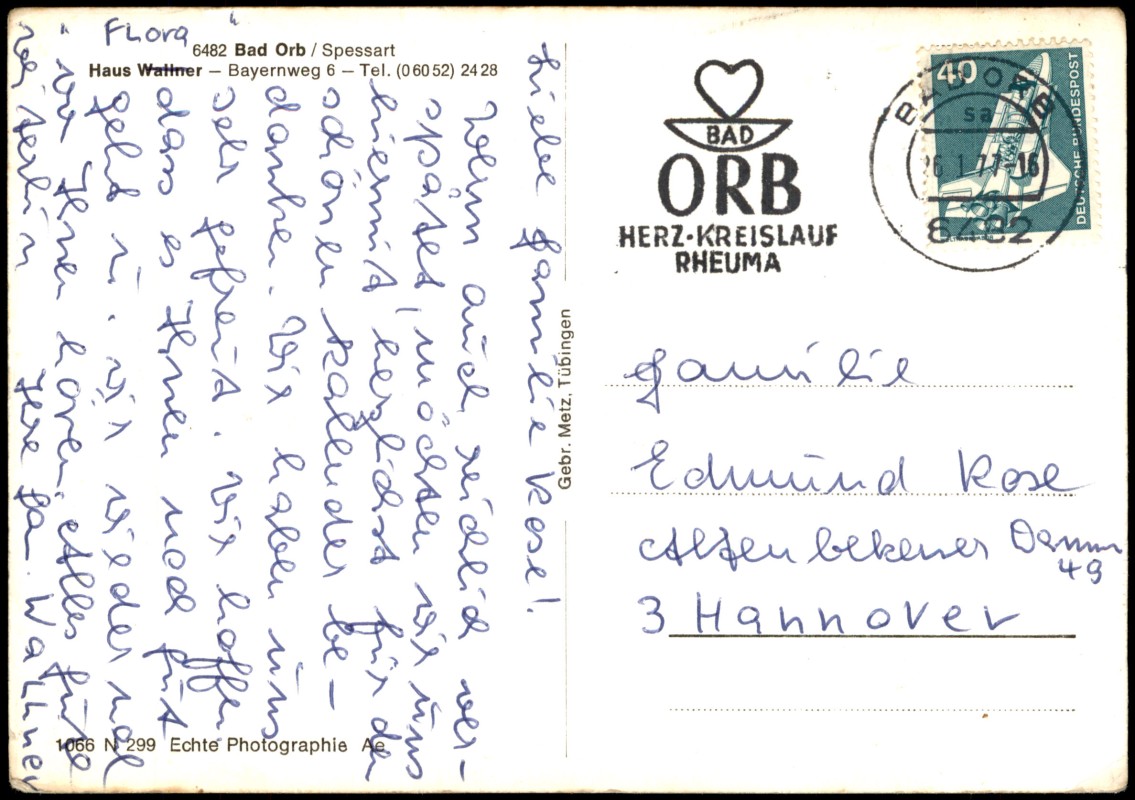 "Flora"
6482 Bad Orb / Spessart
Haus Wallner – Bayernweg 6 – Tel. (06052) 2428
Liebe Familie Kose!
Wenn auch reichlich ver-
spätet, möchten wir uns
hiermit herzlichst für den
schönen Kalender be-
danken. Wir haben uns
sehr gefreut. Wir hoffen
dass es Ihnen noch gut
geht u. wir wieder mal
von Ihnen hören. Alles Gute
weiterhin Ihre Fam. Wallner
1066 N 299 Echte Photographie Ae
Gebr. Metz, Tübingen
BAD
ORB
HERZ-KREISLAUF
RHEUMA
40
DEUTSCHE BUNDESPOST
BAD ORB
sa
26.1.77-16
6482
Familie
Edmund Kose
Altenbekener Damm
49
3 Hannover